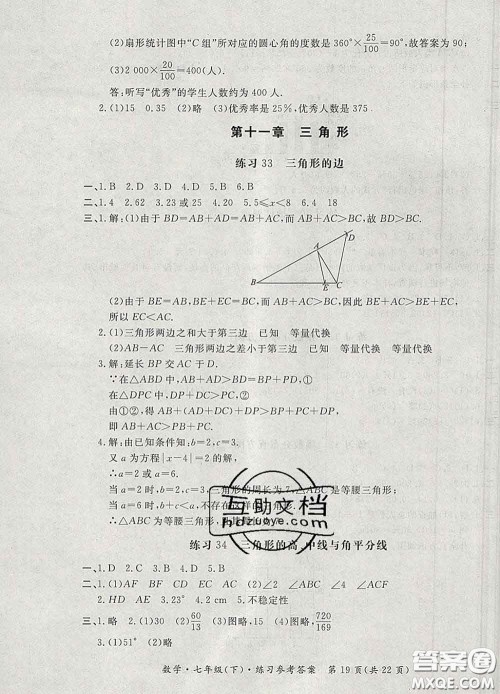 (2)扇形统计图中“C组”所对应的圆心角的度数是360°×25/100=90°,故答案为90;
(3)2 000×20/100=400(人).
答:听写“优秀”的学生人数约为400人.
2.(1)15 0.35 (2)略 (3)优秀率是25%,优秀人数是375
第十一章 三角形
练习33 三角形的边
一、1.B 2.D 3.D 4.B 5.B 6.B
二、1.4 2.62 3.23 4.20 5.5≤x<8 6.4 18
三、1.解:(1)由于BD=AB+AD=AB+AC,而AB+AC>BC,故BD>BC.
D
A
B E C
(2)由于BE=AB,BE+EC=BC,而AB+AC>BC,因此BE+AC>BE+EC,
所以EC<AC.
2.(1)三角形两边之和大于第三边 已知 等量代换
(2)AB-AC 三角形两边之差小于第三边 已知 等量代换 等量代换
3.解:延长BP交AC于D.
∵在△ABD中,AB+AD>BD,①
在△DPC中,DP+DC>PC,②
由①②,得AB+AD+DP+DC>BD+PC,
即AB+AC>BP+PC.
4.解:由已知条件知:b=2,c=3.
又a为方程|x-4|=2的解,
∴a=2或a=6.
当a=2时,b=2,c=3,三角形的周长为7,△ABC为等腰三角形;
当a=6时,b=2,c=3,不存在这样的三角形.
∴△ABC为等腰三角形,
互助文档
hdzuoye.com
练习34 三角形的高、中线与角平分线
一、1.D 2.D 3.C 4.D 5.C 6.D
二、1.(1)AF BF CD EC (2)∠ABF ∠ACF
2.HD AE 3.23° 4.2 cm 5.不稳定性
三、1.略 2.(1)30 (2)60/13 3.图略,720/169
3.(1)51° (2)略
数学·七年级(下)·练习参考答案 第19页(共22页)
答案圈
MXQE.COM